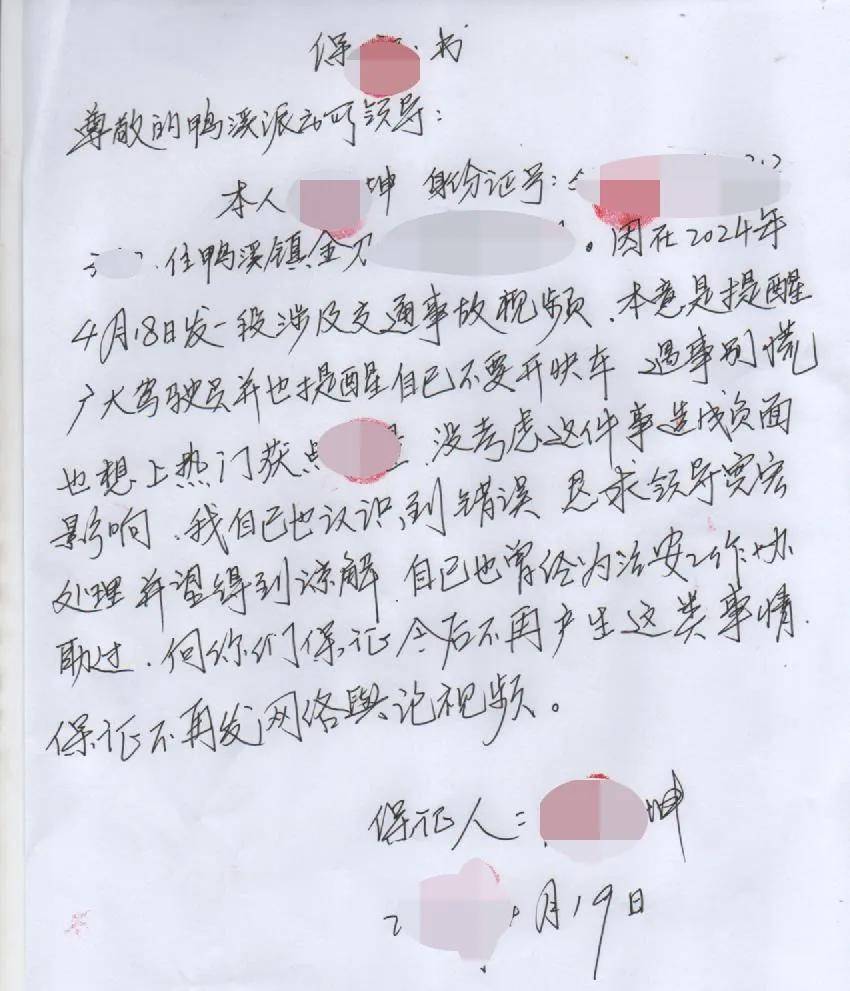 保 书
尊敬的鸭溪派出所领导：
本人 坤 身份证号：
住鸭溪镇金刀 。因在2024年
4月18日发一段涉及交通事故视频、本意是提醒
广大驾驶员并也提醒自己不要开快车 遇事别慌
也想上热门获点 、没考虑这件事造成负面
影响、我自己也认识到错误 恳求领导宽宏
处理并望得到谅解、自己也曾经为治安工作协
助过、向你们保证今后不再产生这类事情、
保证不再发网络舆论视频。
保证人： 坤
2 4月19日